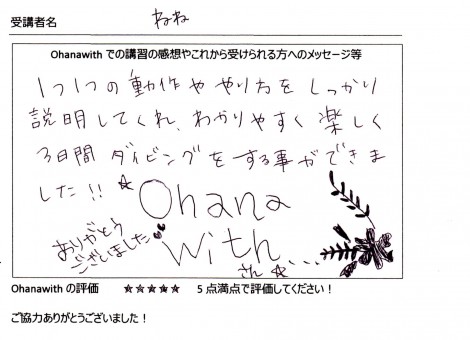 受講者名 ねね
Ohanawith での講習の感想やこれから受けられる方へのメッセージ等
1つ1つの動作ややり方をしっかり
説明してくれ、わかりやすく楽しく
3日間ダイビングをする事ができま
した!!☆
Ohana
With
さん☆...
ありがとう
ございました
Ohanawith の評価 ★★★★★ 5 点満点で評価してください!
ご協力ありがとうございました!